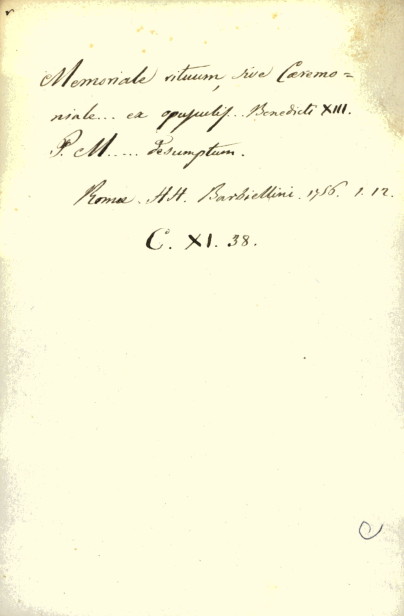 Memoriale rituum, sive Cæremo=
niale... ex opusculis... Benedicti XIII.
P. M..... desumptum.
Romæ. HH. Barbiellini. 1756. 1. 12.
C. XI. 38.